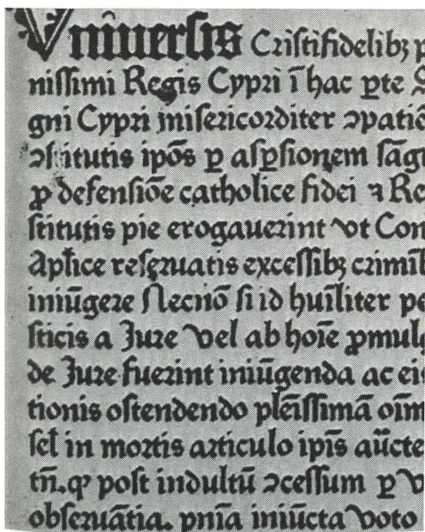 Vniuersis Cristifidelibꝫ p
nissimi Regis Cypri ī hac ꝑte S
gni Cypri misericorditer ꝯpatiē
ꝯstitutis ipōs ꝑ aspsionem sāg
ꝓ defensiōe catholice fidei ⁊ Re
stitutis pie erogauerint vt Con
Aplīce reseruatis excessibꝫ crimīb
iniūgere Necnō si id huīliter pe
sticis a Jure vel ab hoīe ꝓmulg
de Jure fuerint iniūgenda ac ei
tionis ostendendo plēissimā oīm
sel in mortis articulo ipīs aūcte
tn̄.ꝙ post indultū ꝯcessum ꝑ v
obseruātia. pnīa iniūcta voto